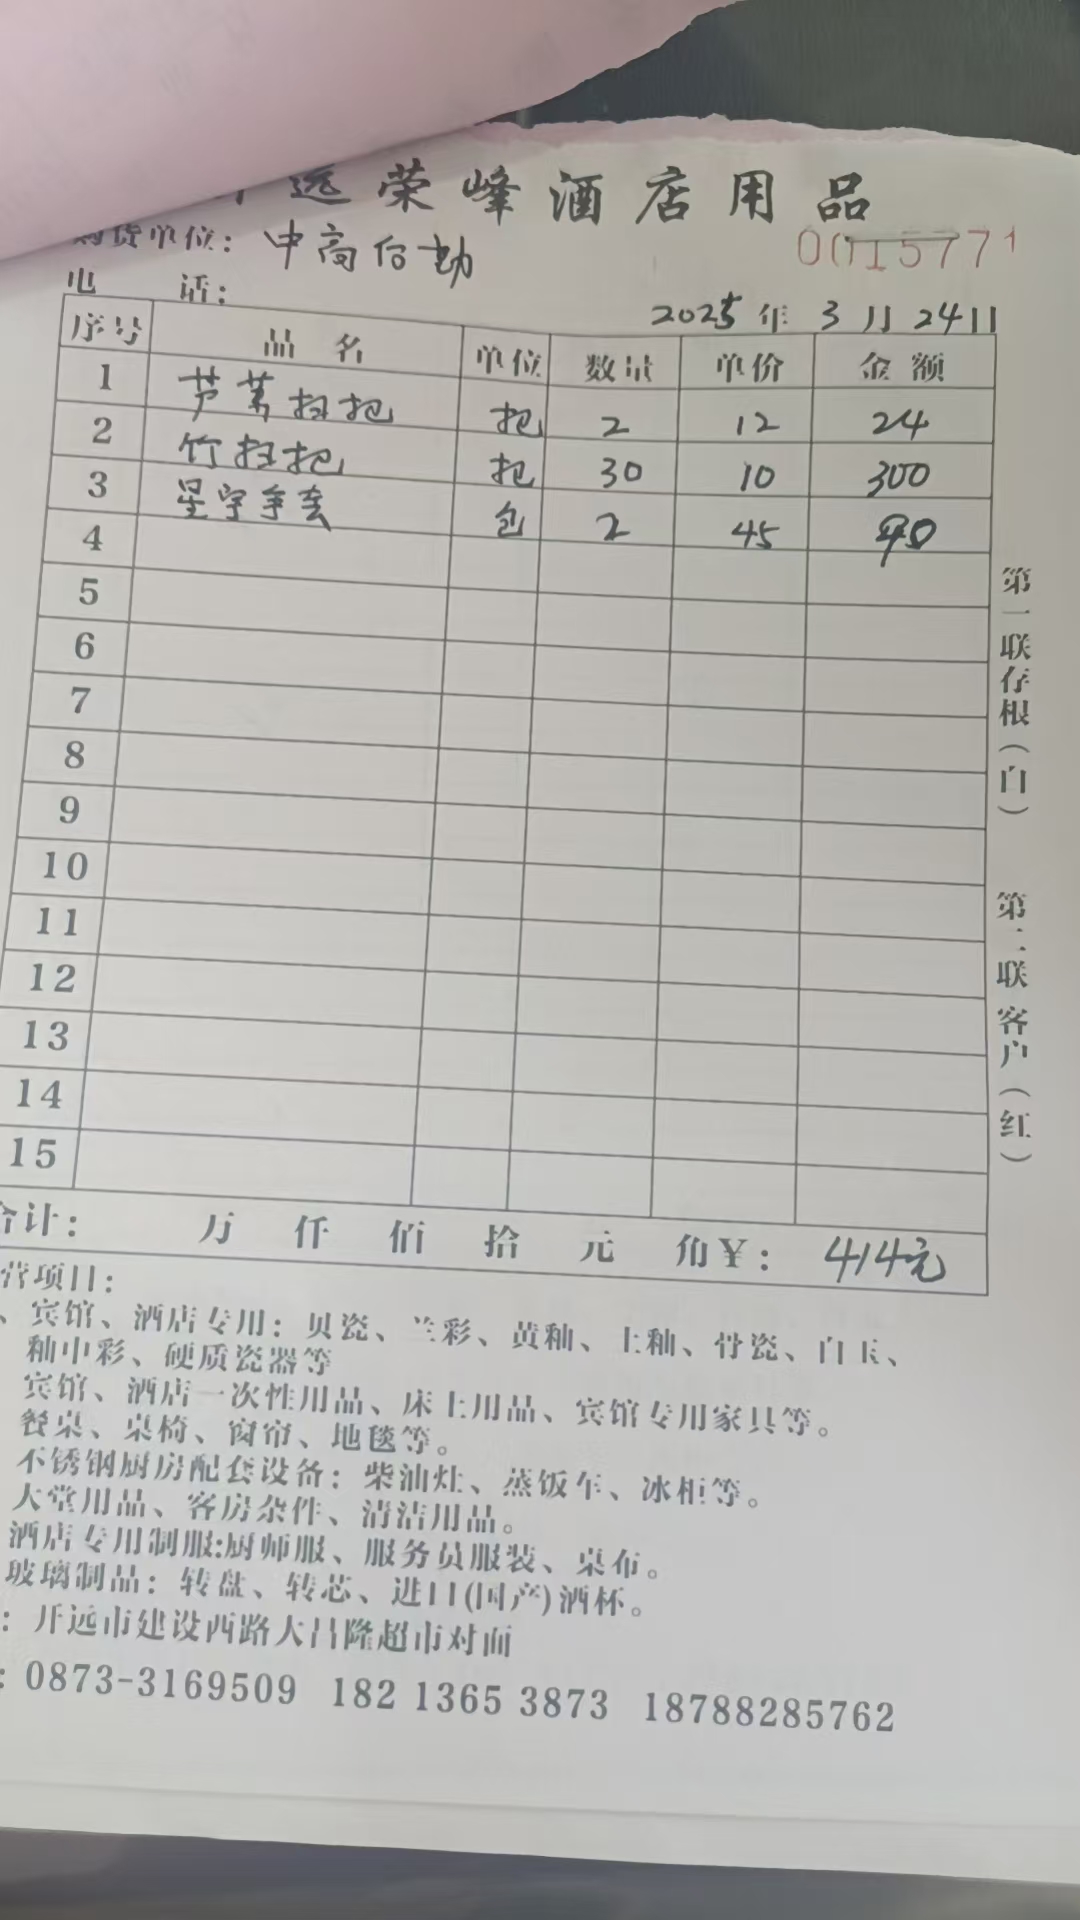 远荣峰酒店用品
购货单位：中高后勤
0015771
电 话：
2025年3月24日
序号 品名 单位 数量 单价 金额
1 芦苇扫把 把 2 12 24
2 竹扫把 把 30 10 300
3 星宇手套 包 2 45 90
4
5
6
7
8
9
10
11
12
13
14
15
合计： 万 仟 佰 拾 元 角¥：414元
第一联存根（白） 第二联客户（红）
营项目：
、宾馆、酒店专用：贝瓷、兰彩、黄釉、土釉、骨瓷、白玉、
釉中彩、硬质瓷器等
宾馆、酒店一次性用品、床上用品、宾馆专用家具等。
餐桌、桌椅、窗帘、地毯等。
不锈钢厨房配套设备：柴油灶、蒸饭车、冰柜等。
大堂用品、客房杂件、清洁用品。
酒店专用制服:厨师服、服务员服装、桌布。
玻璃制品：转盘、转芯、进口(国产)酒杯。
：开远市建设西路大昌隆超市对面
：0873-3169509 182 1365 3873 18788285762